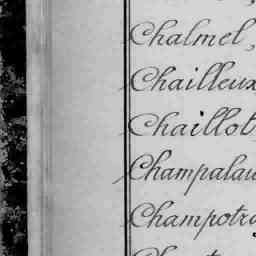 Chalmel,
Chailleux
Chaillot
Champalau
Champotra